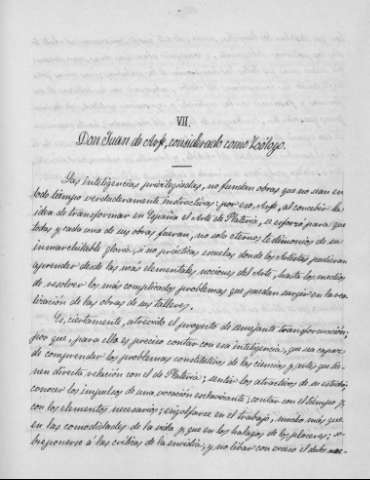 VII.
Don Juan de Arfe, considerado como Zoólogo.
Las inteligencias privilegiadas, no fundan obras que no sean en
todo tiempo verdaderamente instructivas: por eso, Arfe, al concebir la
idea de transformar en España el Arte de Platería, se esforzó para que
todas y cada una de sus obras fueran, no solo eternos testimonios de su
inmarchitable gloria, si no prácticas escuelas donde los Artistas pudieran
aprender desde las más elementales nociones del Arte, hasta los medios
de resolver los más complicados problemas que puedan surgir en la
de las obras de sus talleres.
Es, ciertamente, atrevido el proyecto de semejante transformación;
por que, para ella es preciso contar con una inteligencia, que sea capaz
de comprender los problemas constitutivos de las ciencias y artes que
tienen directa relación con el de Platería; sentir los atractivos de su estudio;
conocer los impulsos de una vocación entusiasta; contar con el tiempo y
con los elementos necesarios; engolfarse en el trabajo, mucho más que
en las comodidades de la vida y que en los halagos de los placeres; so-
breponerse á las críticas de la envidia; y no libar con exceso el dulce